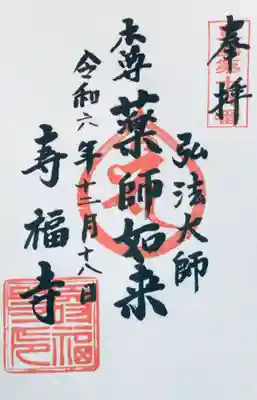 奉拝
弘法大師
本尊 薬師如来
令和六年十二月十八日
寿福寺